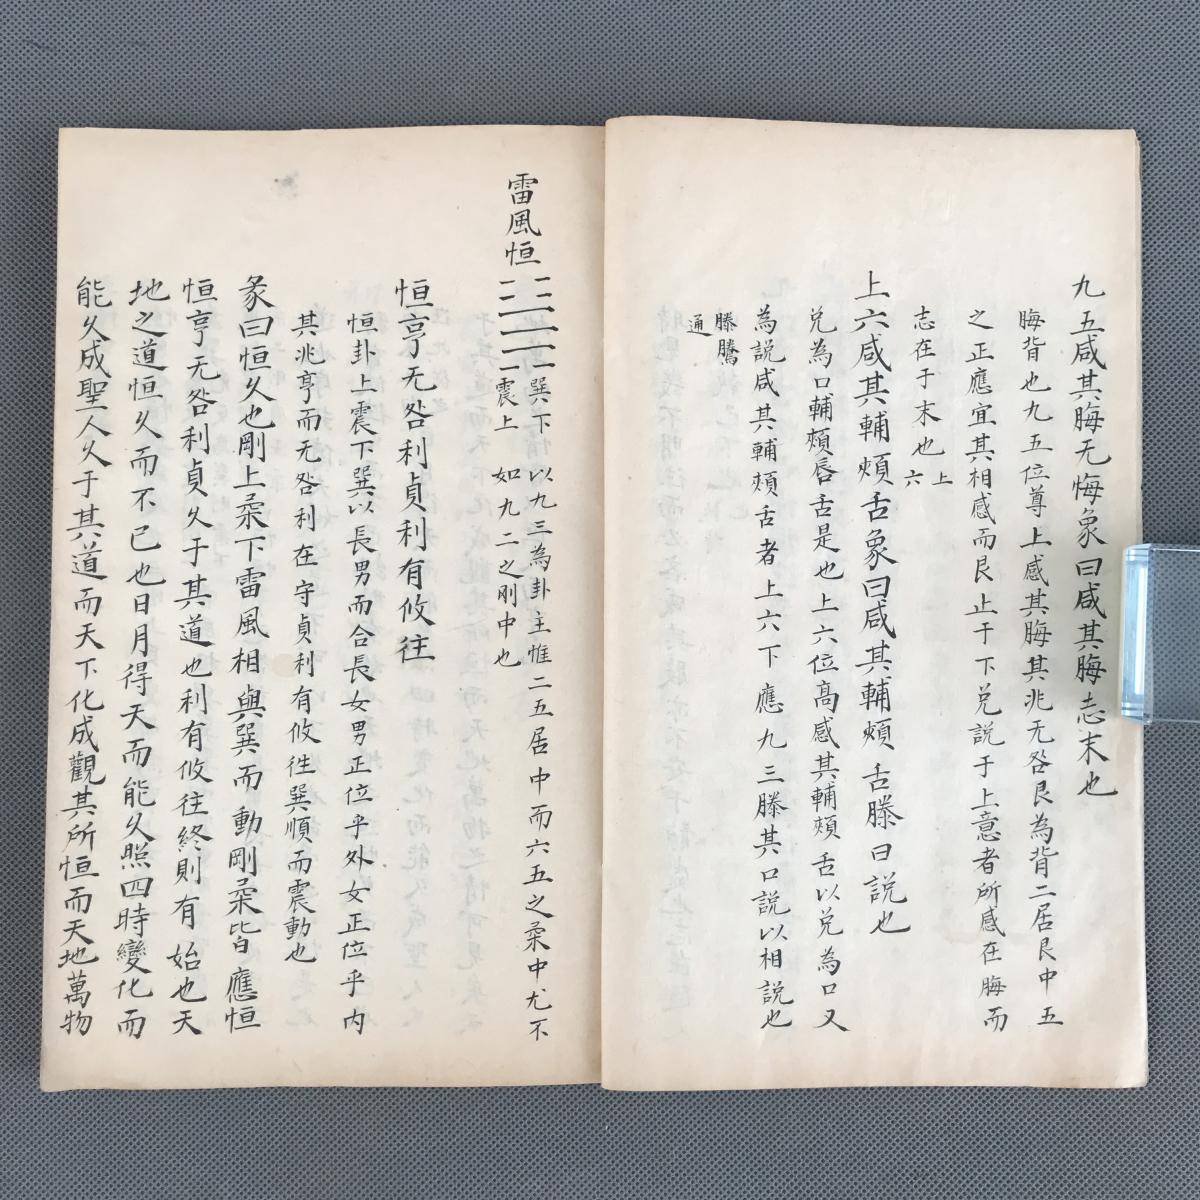 九五咸其脢无悔象曰咸其脢志末也
脢背也九五位尊上感其脢其兆无咎艮為背二居艮中五
之正應宜其相感而艮止于下兑説于上意者所感在脢而
志在于末也上六
上六咸其輔頰舌象曰咸其輔頰舌滕曰説也
兑為口輔頰唇舌是也上六位高感其輔頰舌以兑為口又
為説咸其輔頰舌者上六下應九三滕其口説以相説也
滕騰
通
雷風恒
巽下 以九三為卦主惟二五居中而六五之柔中尤不
震上 如九二之剛中也
恒亨无咎利貞利有攸往
恒卦上震下巽以長男而合長女男正位乎外女正位乎内
其兆亨而无咎利在守貞利有攸徃巽順而震動也
彖曰恒久也剛上柔下雷風相與巽而動剛柔皆應恒
恒亨无咎利貞久于其道也利有攸往終則有始也天
地之道恒久而不已也日月得天而能久照四時變化而
能久成聖人久于其道而天下化成觀其所恒而天地萬物